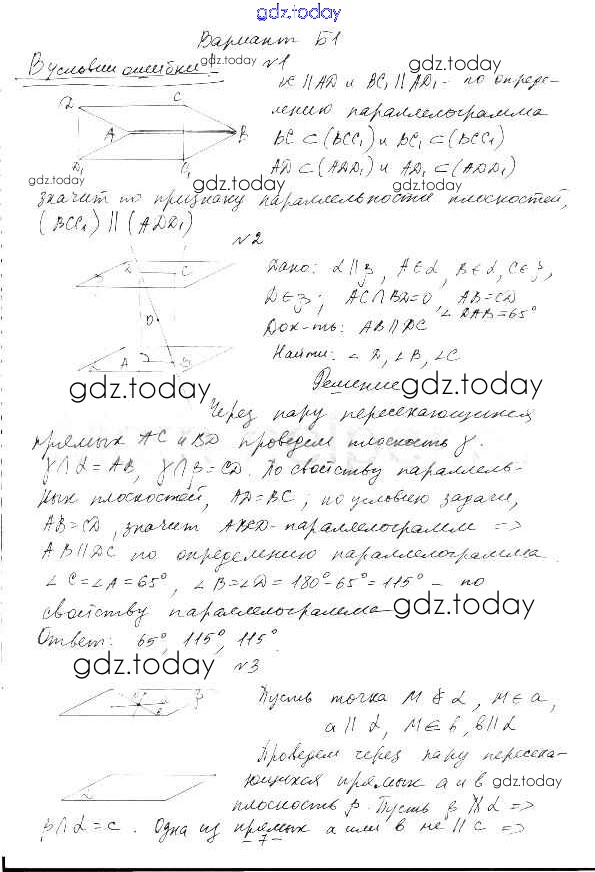 gdz.today
Вариант Б1
В условии ошибки! gdz.today №1
ВС || AD и BC₁ || AD₁ - по опреде-
gdz.today
лению параллелограмма
BC ⊂ (BCC₁) и BC₁ ⊂ (BCC₁)
AD ⊂ (ADD₁) и AD₁ ⊂ (ADD₁)
D C A B D₁ C₁
gdz.today gdz.today gdz.today
значит по признаку параллельности плоскостей,
(BCC₁) || (ADD₁)
№2
Дано: α || β, A ∈ α, B ∈ α, C ∈ β,
D ∈ β; AC ∩ BD = O, AB = CD
∠DAB = 65°
Док-ть: AB || DC
Найти: ∠D, ∠B, ∠C
β D C O A B
gdz.today gdz.today
Решение
Через пару пересекающихся
прямых AC и BD проведем плоскость γ.
γ ∩ α = AB, γ ∩ β = CD. По свойству параллель-
ных плоскостей, AD = BC; по условию задачи,
AB = CD, значит ABCD - параллелограмм =>
AB || DC по определению параллелограмма.
∠C = ∠A = 65°, ∠B = ∠D = 180° - 65° = 115° - по
свойству параллелограмма gdz.today
Ответ: 65°, 115°, 115°.
gdz.today №3
Пусть точка M ∉ α, M ∈ a,
a || α, M ∈ b, b || α
Проведем через пару пересека-
ющихся прямых a и b gdz.today
плоскость β. Пусть β ∦ α =>
M a b β
α
β ∩ α = c. Одна из прямых a или b не || c =>
- 7 -